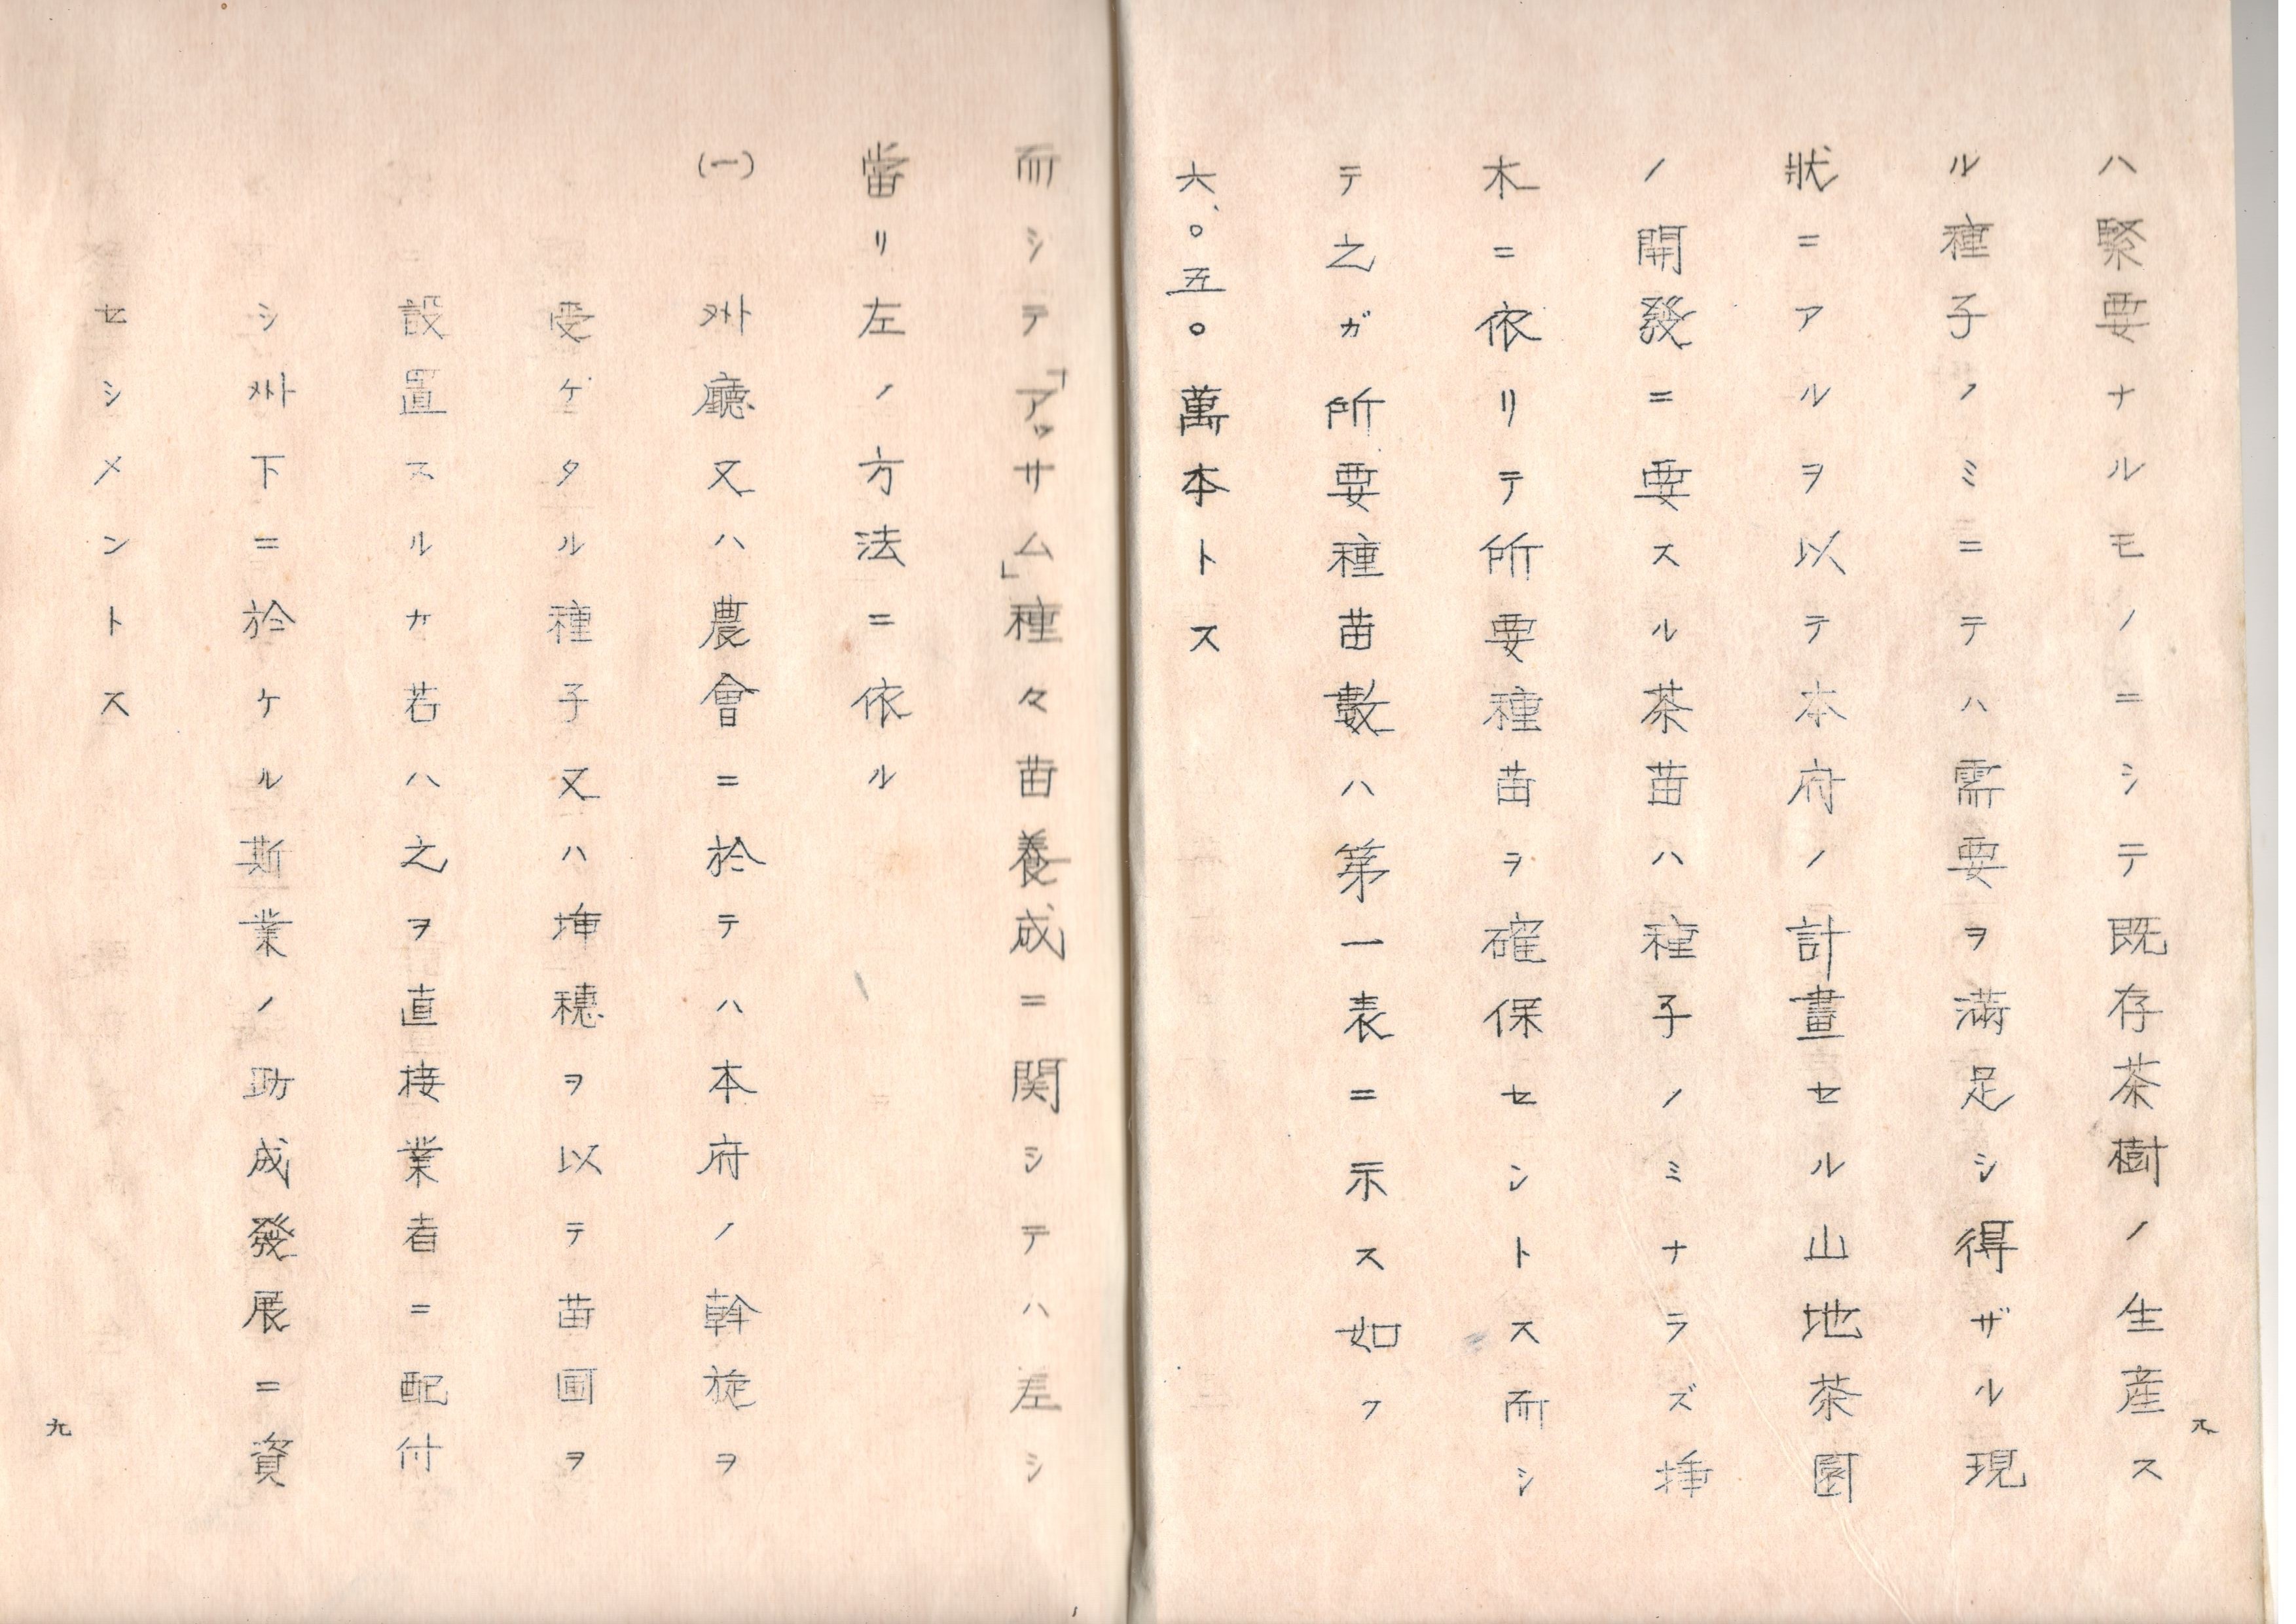 ハ緊要ナルモノニシテ既存茶樹ノ生産ス
ル種子ノミニテハ需要ヲ滿足シ得ザル現
狀ニアルヲ以テ本府ノ計畫セル山地茶園
ノ開發ニ要スル茶苗ハ種子ノミナラズ揷
木ニ依リテ所要種苗ヲ確保セントス而シ
テ之ガ所要種苗數ハ第一表ニ示ス如ク
六、〇五〇萬本トス
而シテ「アッサム」種々苗養成ニ関シテハ差シ
當リ左ノ方法ニ依ル
(一) 州廳又ハ農會ニ於テハ本府ノ斡旋ヲ
受ケタル種子又ハ揷穗ヲ以テ苗圃ヲ
設置スルカ若ハ之ヲ直接業者ニ配付
シ州下ニ於ケル斯業ノ助成發展ニ資
セシメントス
九